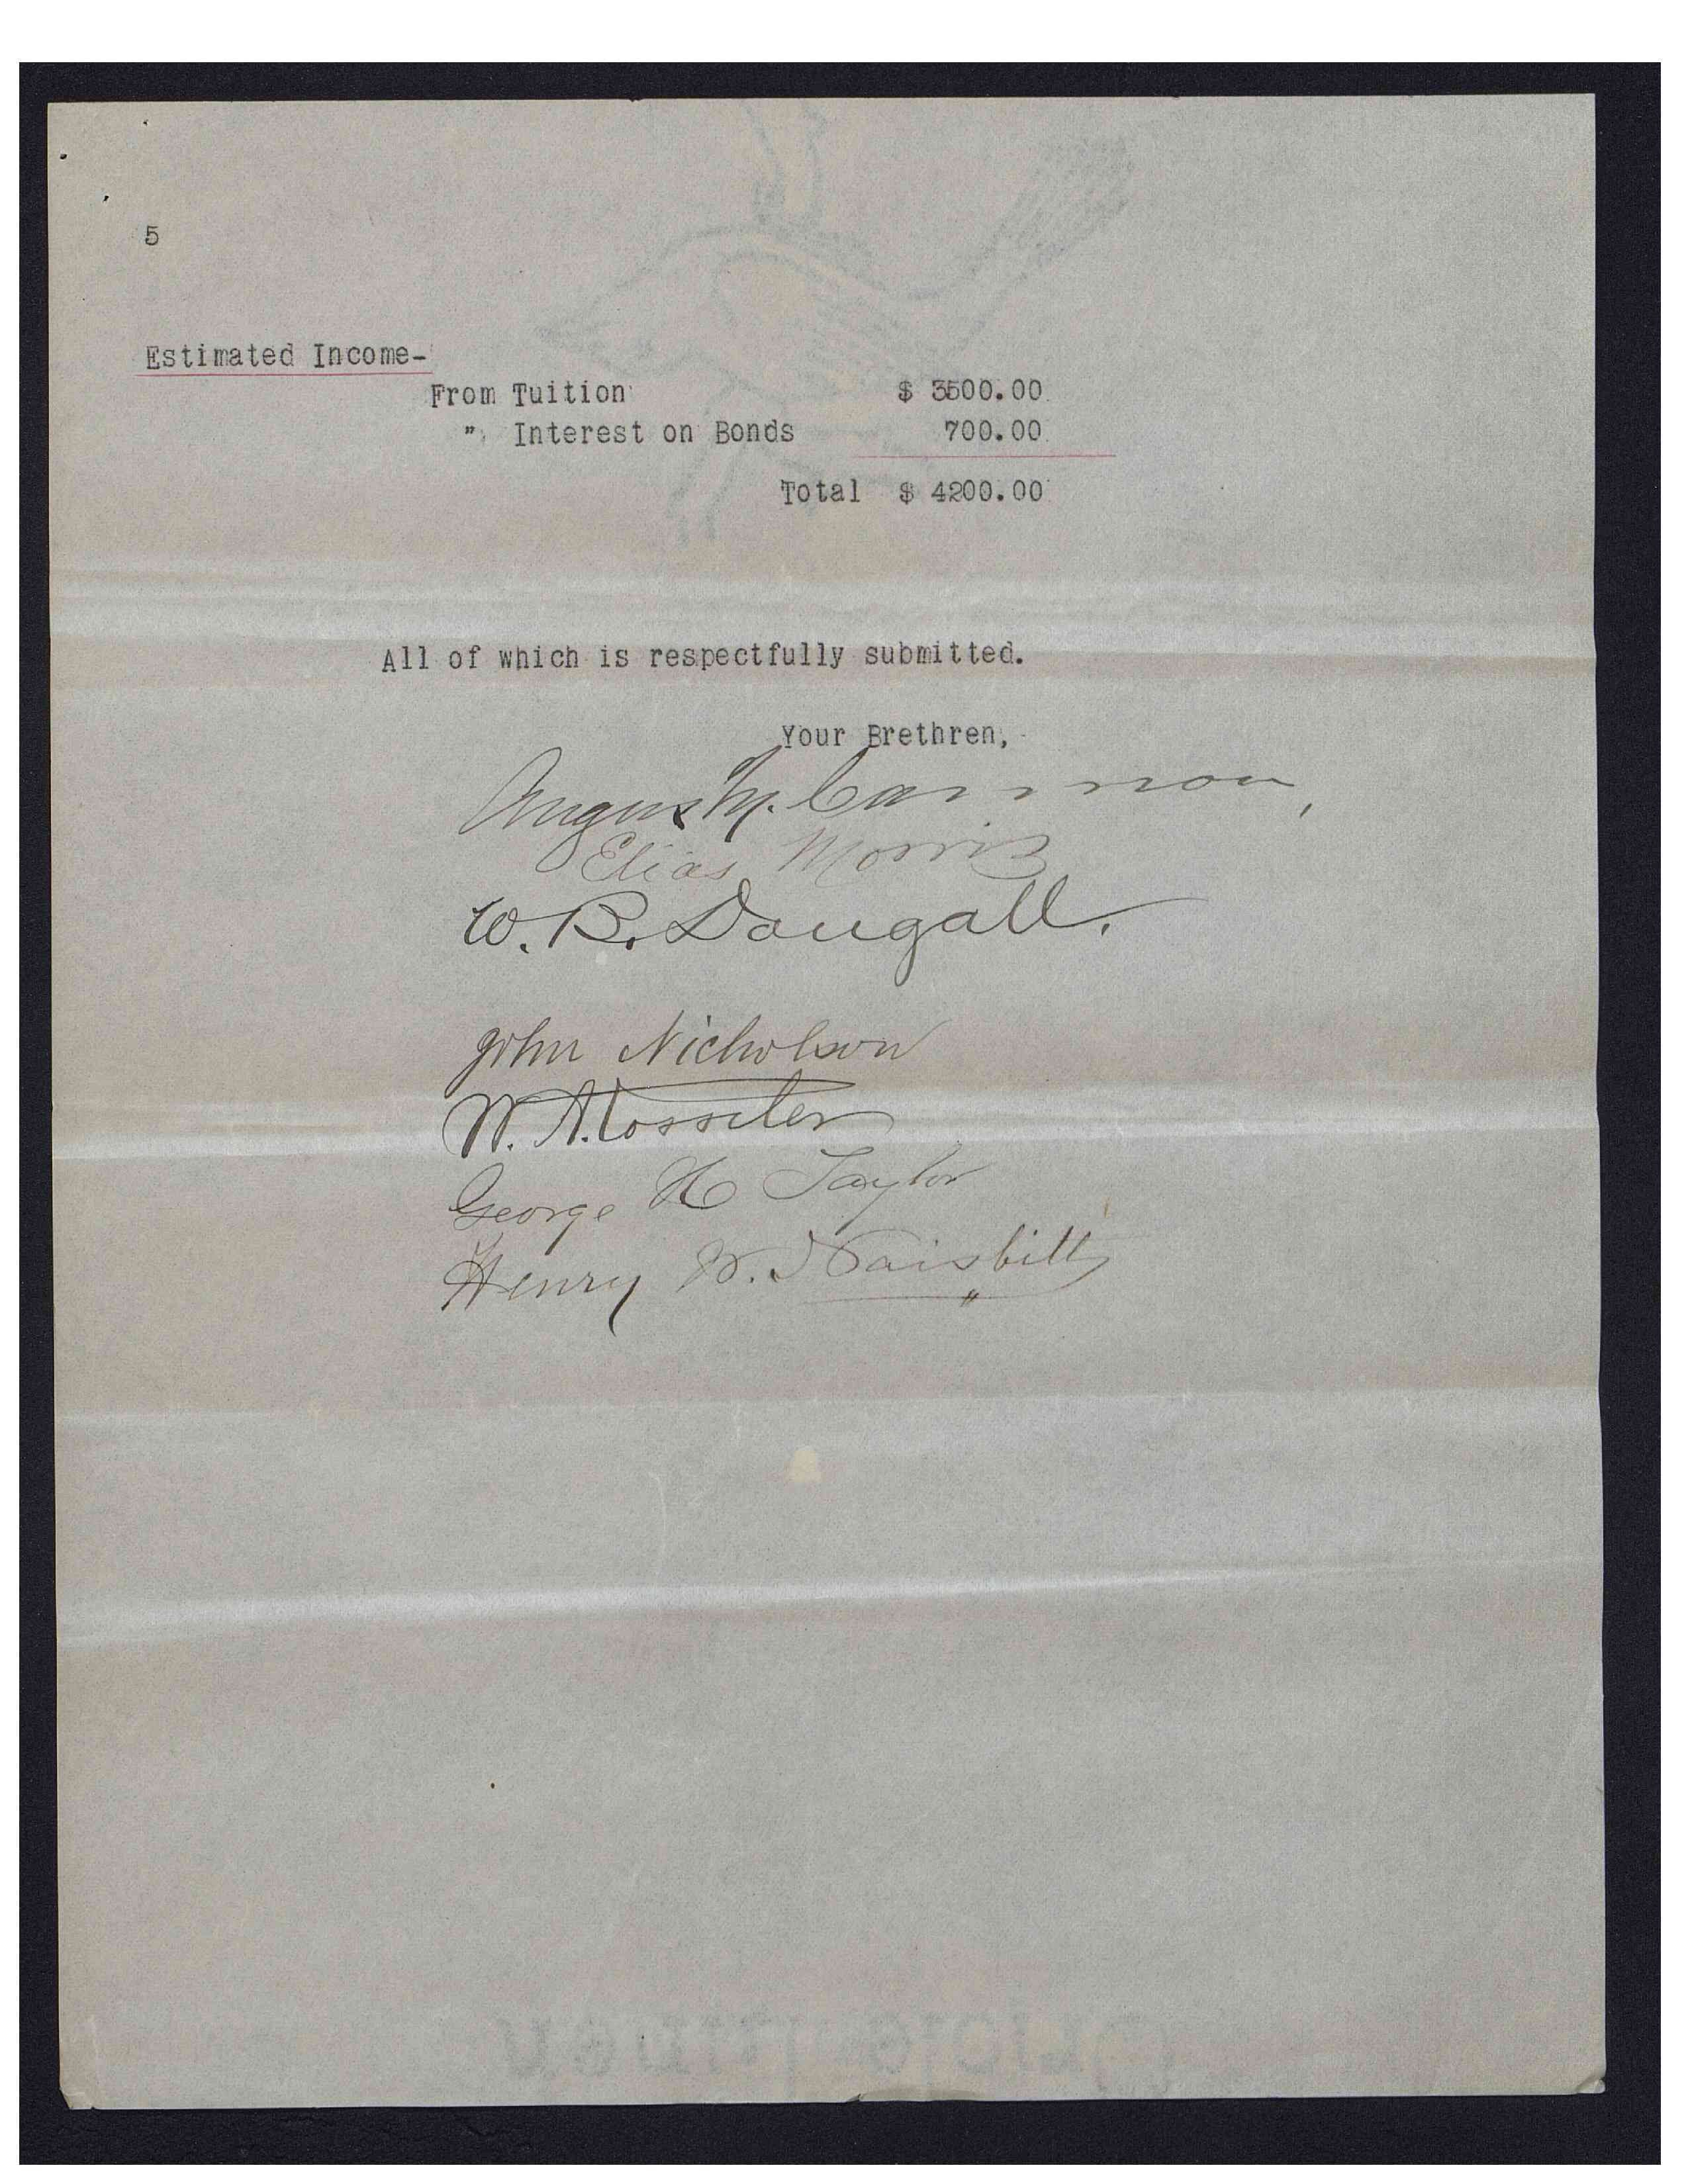 5
Estimated Income-
From Tuition $ 3500.00
" Interest on Bonds 700.00
Total $ 4200.00
All of which is respectfully submitted.
Your Brethren,
Angus M. Cannon,
Elias Morris
W. B. Dougall.
John Nicholson
W. A. Rossiter
George H Taylor
Henry W. Naisbitt